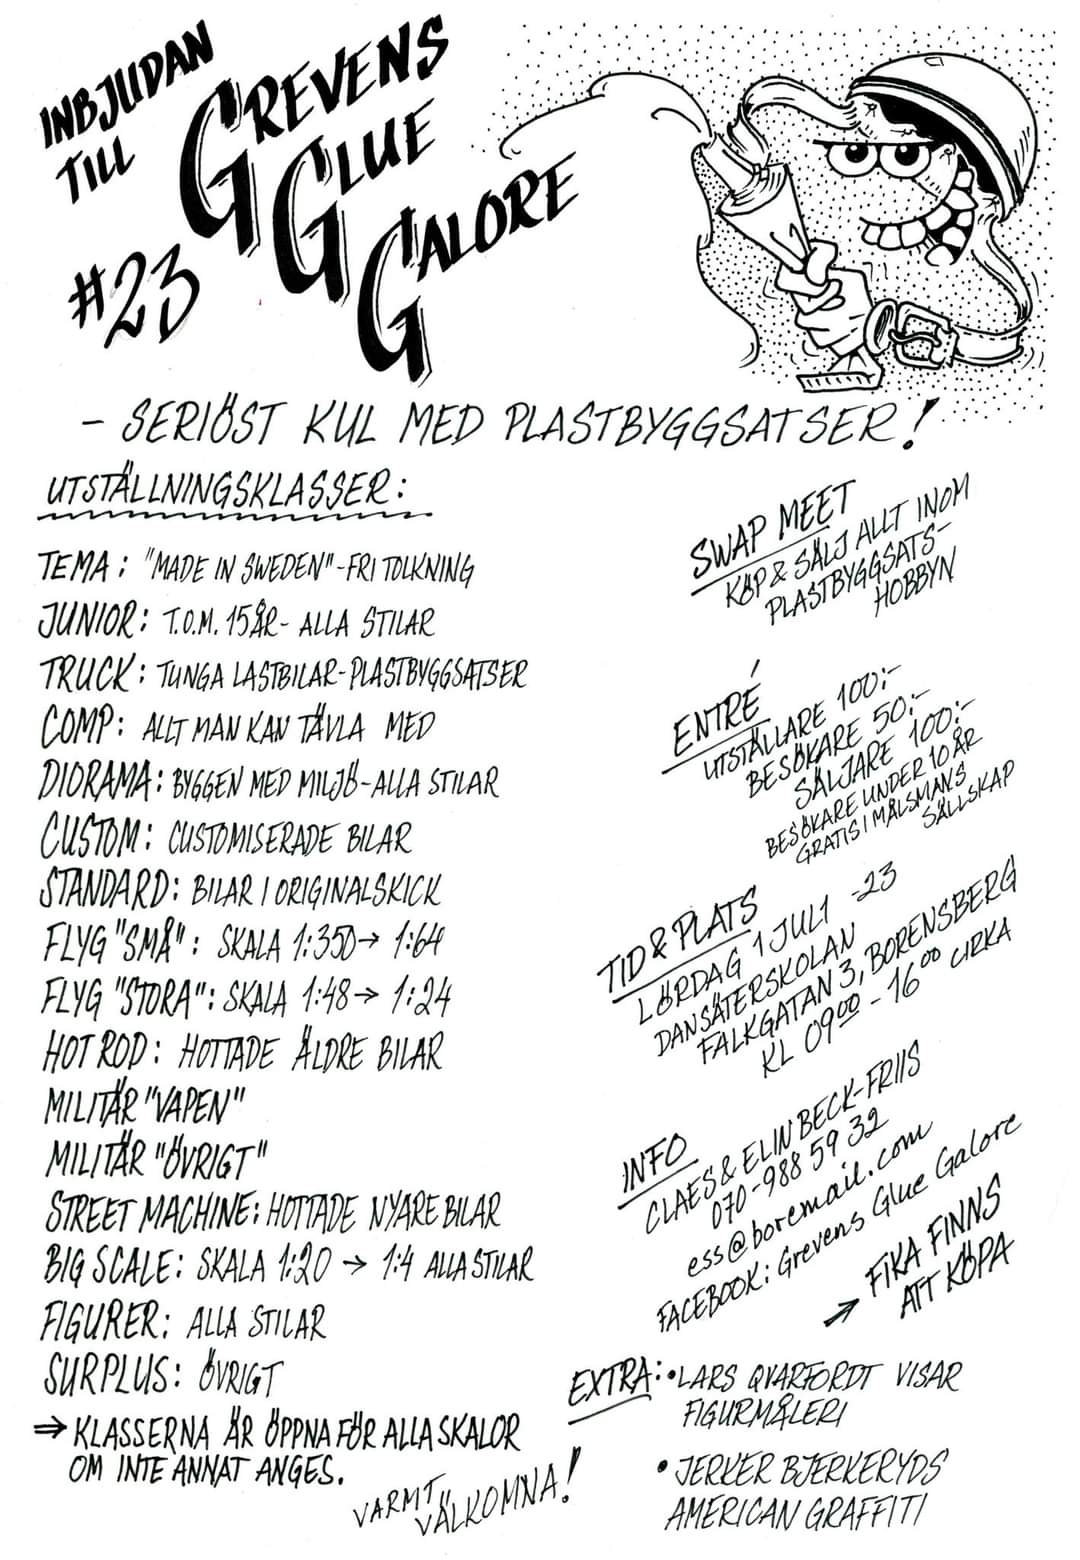 INBJUDAN
TILL
GREVENS
GLUE
GALORE
#23
- SERIÖST KUL MED PLASTBYGGSATSER!
UTSTÄLLNINGSKLASSER:
TEMA: "MADE IN SWEDEN"-FRI TOLKNING
JUNIOR: T.O.M. 15ÅR- ALLA STILAR
TRUCK: TUNGA LASTBILAR-PLASTBYGGSATSER
COMP: ALLT MAN KAN TÄVLA MED
DIORAMA: BYGGEN MED MILJÖ-ALLA STILAR
CUSTOM: CUSTOMISERADE BILAR
STANDARD: BILAR I ORIGINALSKICK
FLYG "SMÅ": SKALA 1:350→ 1:64
FLYG "STORA": SKALA 1:48→ 1:24
HOT ROD: HOTTADE ÄLDRE BILAR
MILITÄR "VAPEN"
MILITÄR "ÖVRIGT"
STREET MACHINE: HOTTADE NYARE BILAR
BIG SCALE: SKALA 1:20 → 1:4 ALLA STILAR
FIGURER: ALLA STILAR
SURPLUS: ÖVRIGT
⇒ KLASSERNA ÄR ÖPPNA FÖR ALLA SKALOR
OM INTE ANNAT ANGES.
VARMT
VÄLKOMNA!
SWAP MEET
KÖP & SÄLJ ALLT INOM
PLASTBYGGSATS-
HOBBYN
ENTRÉ
UTSTÄLLARE 100:-
BESÖKARE 50:-
SÄLJARE 100:-
BESÖKARE UNDER 10 ÅR
GRATIS I MÅLSMANS
SÄLLSKAP
TID & PLATS
LÖRDAG 1 JULI -23
DANSÄTERSKOLAN
FALKGATAN 3, BORENSBERG
KL 09⁰⁰ - 16⁰⁰ CIRKA
INFO
CLAES & ELIN BECK-FRIIS
070-988 59 32
ess@boremail.com
FACEBOOK: Grevens Glue Galore
→ FIKA FINNS
ATT KÖPA
EXTRA: • LARS QVARFORDT VISAR
FIGURMÅLERI
• JERKER BJERKERYDS
AMERICAN GRAFFITI